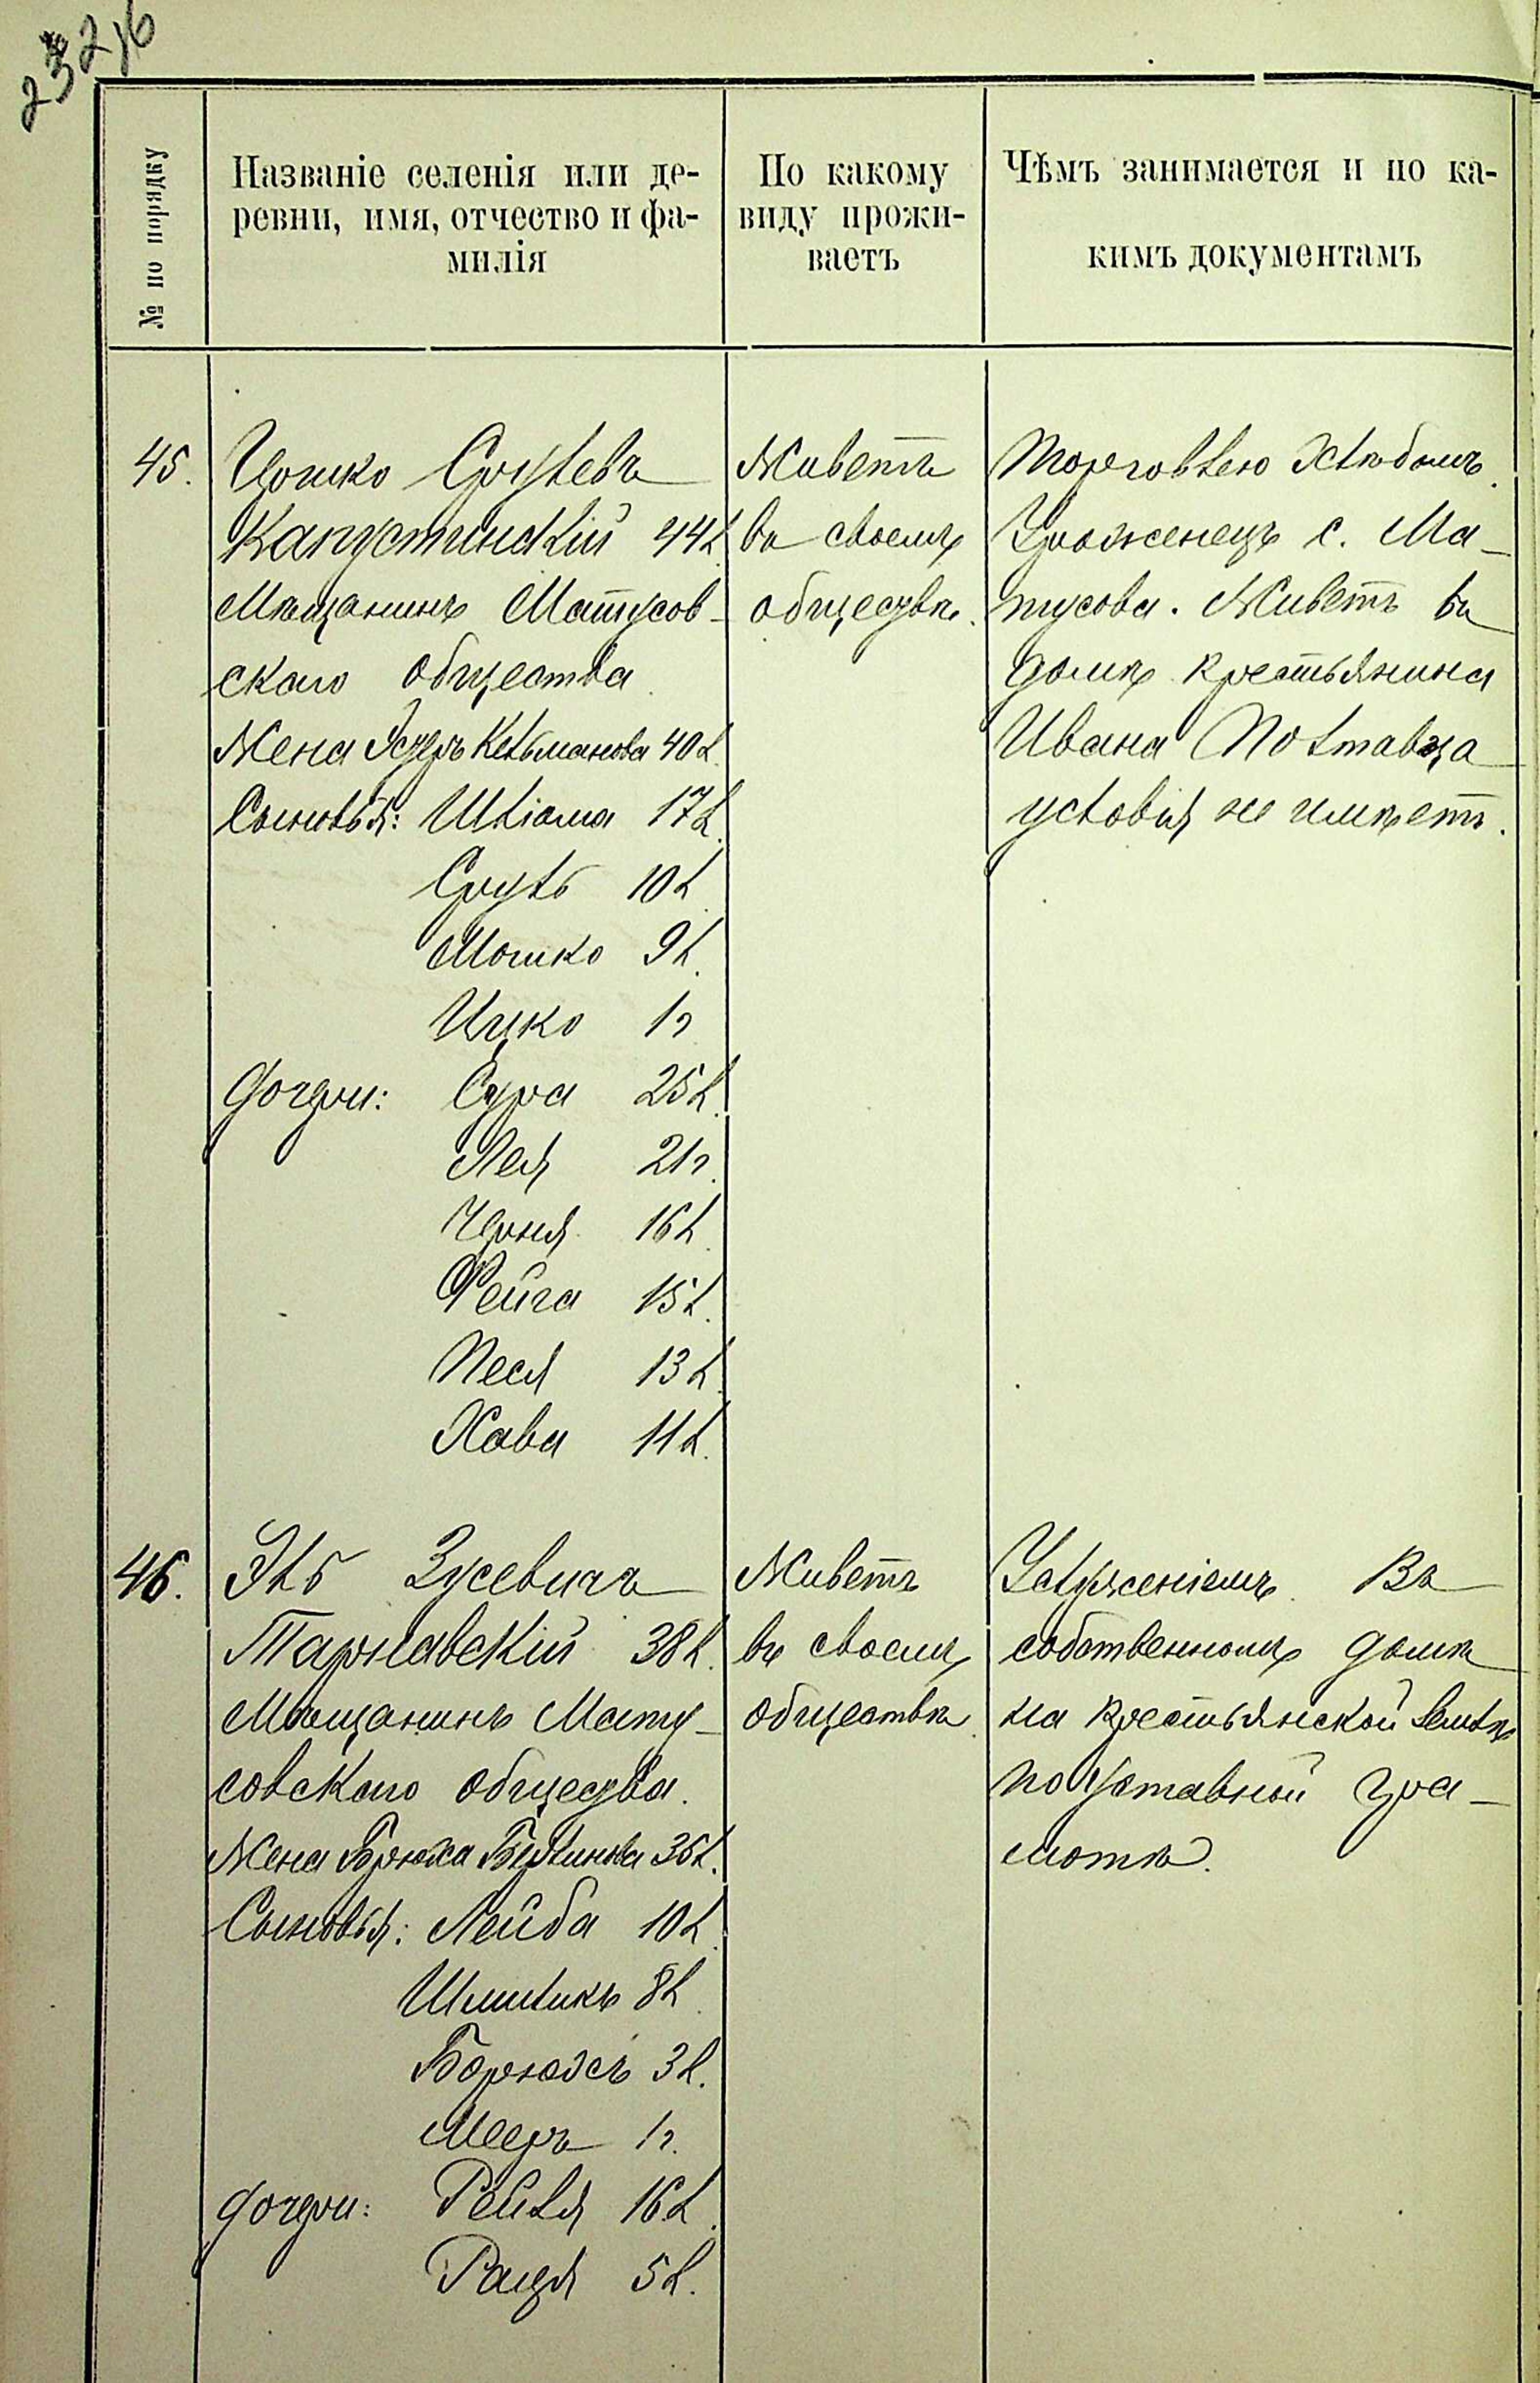 № по порядку
Названіе селенія или де-
ревни, имя, отчество и фа-
милія
По какому
виду прожи-
ваетъ
Чѣмъ занимается и по ка-
кимъ документамъ
45.
Іошко Срулевъ
Капустинскій 44 л.
Мѣщанинъ Матусов-
скаго общества
Жена Эстеръ Кельманова 40 л.
Сыновья: Шліома 17 л.
Сруль 10 л.
Мошко 9 л.
Ицко 1 г
Дочери: Сура 25 л.
Лея 21 г.
Черня 16 л.
Фейга 15 л.
Песя 13 л.
Хава 11 л.
Живетъ
въ своемъ
обществѣ.
Торговлею хлѣбомъ.
Уроженецъ с. Ма-
тусова. Живетъ въ
домѣ крестьянина
Ивана Полтавца
условія не имѣетъ.
46.
Эль Зусевичъ
Тарнавскій 38 л.
Мѣщанинъ Мату-
совскаго общества.
Жена Брюха 36 л.
Сыновья: Лейба 10 л.
Шмиликъ 8 л.
3 л.
Мееръ 1 г.
Дочери: Рейзя 16 л.
5 л.
Живетъ
въ своемъ
обществѣ
Услуженіемъ. Въ
собственномъ домѣ
на крестьянской землѣ
по Уставной гра-
мотѣ.